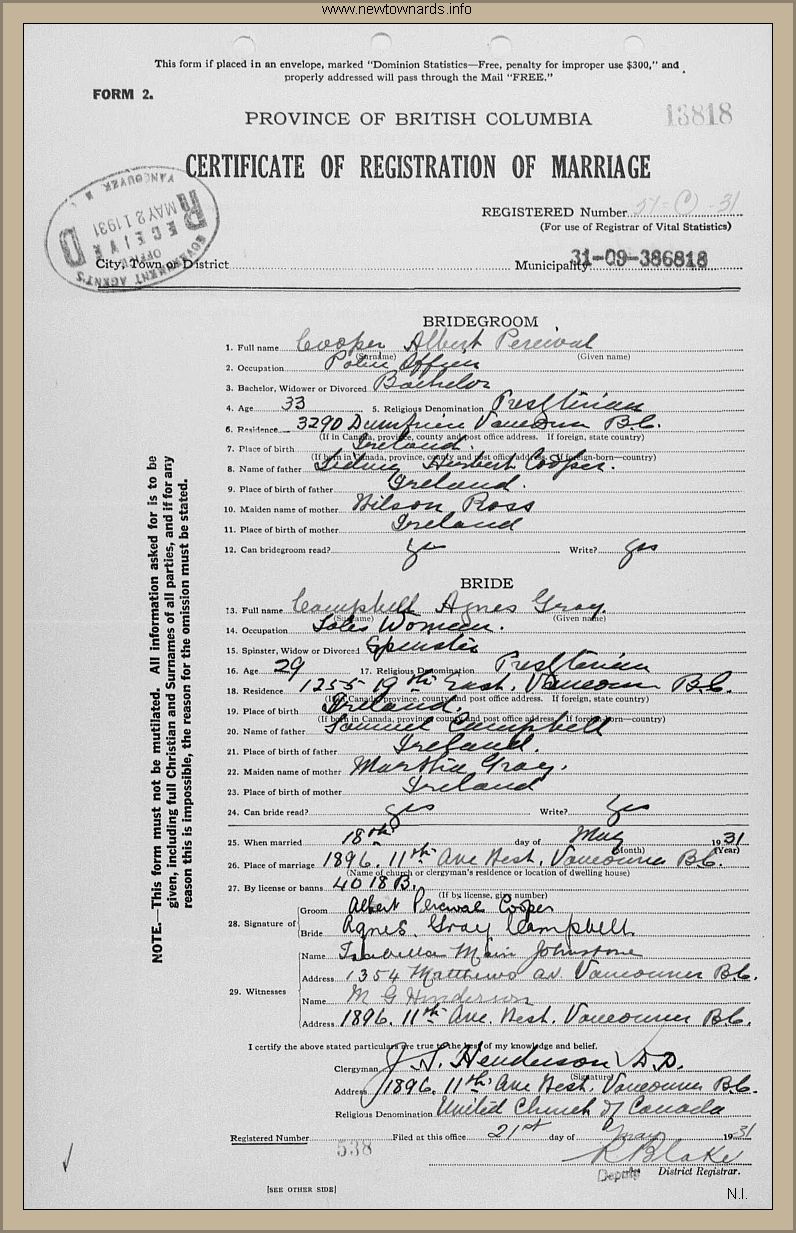 www.newtownards.info
This form if placed in an envelope, marked "Dominion Statistics—Free, penalty for improper use $300," and
properly addressed will pass through the Mail "FREE."
FORM 2.
PROVINCE OF BRITISH COLUMBIA
13818
CERTIFICATE OF REGISTRATION OF MARRIAGE
GOVERNMENT AGENT'S OFFICE
RECEIVED
MAY 21 1931
VANCOUVER
REGISTERED Number
(For use of Registrar of Vital Statistics)
City, Town or District Municipality 31-09-386818
NOTE.—This form must not be mutilated. All information asked for is to be
given, including full Christian and Surnames of all parties, and if for any
reason this is impossible, the reason for the omission must be stated.
BRIDEGROOM
1. Full name Cooper Albert Percival
(Surname) (Given name)
2. Occupation Police Officer
3. Bachelor, Widower or Divorced Bachelor
4. Age 33 5. Religious Denomination Presbterian
6. Residence 3290 Dumfries Vancouver B.C.
(If in Canada, province, county and post office address. If foreign, state country)
7. Place of birth Ireland.
(If born in Canada, province, county and post office address. If foreign-born—country)
8. Name of father Sidney Herbert Cooper.
9. Place of birth of father Ireland.
10. Maiden name of mother Wilson Ross
11. Place of birth of mother Ireland
12. Can bridegroom read? yes Write? yes
BRIDE
13. Full name Campbell Agnes Gray.
(Surname) (Given name)
14. Occupation Sales Woman.
15. Spinster, Widow or Divorced Spinster
16. Age 29 17. Religious Denomination Presbterian
18. Residence 1255 19th East, Vancouver B.C.
(If in Canada, province, county and post office address. If foreign, state country)
19. Place of birth Ireland.
(If born in Canada, province, county and post office address. If foreign-born—country)
20. Name of father Samuel Campbell
21. Place of birth of father Ireland.
22. Maiden name of mother Martha Gray.
23. Place of birth of mother Ireland
24. Can bride read? yes Write? yes
25. When married 18th day of May 1931
(Month) (Year)
26. Place of marriage 1896. 11th Ave West, Vancouver B.C.
(Name of church or clergyman's residence or location of dwelling house)
27. By license or banns 4018 B.
(If by license, give number)
28. Signature of Groom Albert Percival Cooper
Bride Agnes Gray Campbell
29. Witnesses Name Isabella Main Johnstone
Address 1354 Matthews av. Vancouver B.C.
Name M G Henderson
Address 1896. 11th Ave. West. Vancouver B.C.
I certify the above stated particulars are true to the best of my knowledge and belief.
Clergyman J. S. Henderson D.D.
(Signature)
Address 1896. 11th Ave West. Vancouver B.C.
Religious Denomination United Church of Canada
Registered Number 538 Filed at this office 21st day of May 1931
R Blake
Deputy District Registrar.
[SEE OTHER SIDE]
N.I.